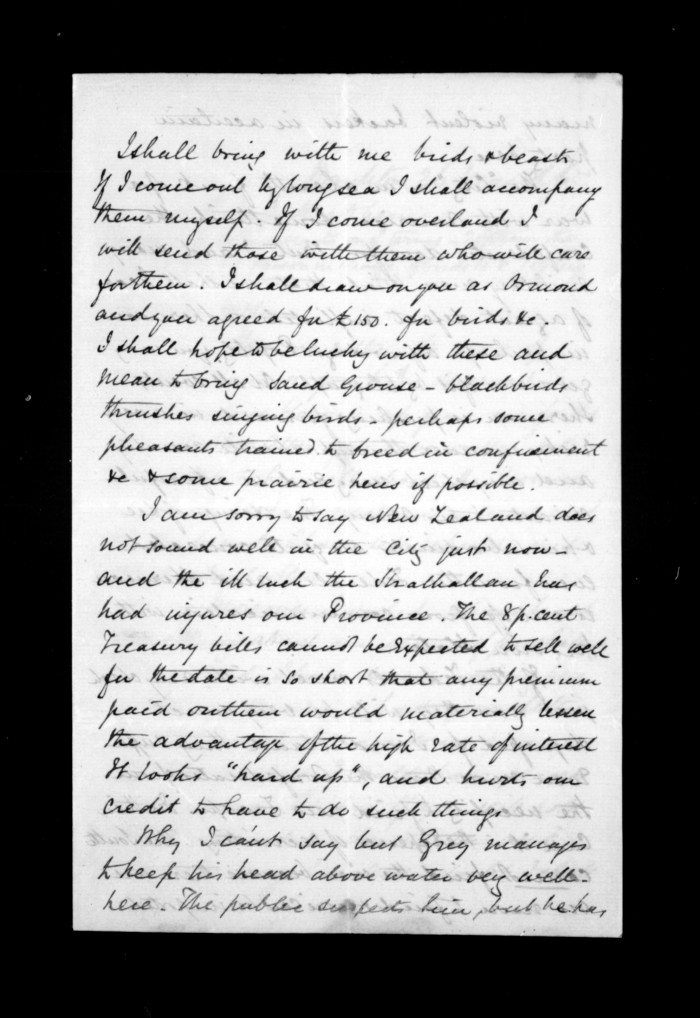 I shall bring with me birds & beasts
If I come out by long sea I shall accompany
them myself. If I come overland I
will send those with them who will care
for them. I shall draw on you as Ormond
and you agreed for £150. for birds &c.
I shall hope to be lucky with these and
mean to bring Sand Grouse - blackbirds
thrushes singing birds - perhaps some
pheasants trained to breed in confinement
&c & some prairie hens if possible.
I am sorry to say New Zealand does
not sound well in the City just now -
and the ill luck the Strathallan has
had injures our Province. The 8 p. cent
Treasury bills cannot be expected to sell well
for the date is so short that any premium
paid on them would materially lessen
the advantage of the high rate of interest
It looks "hard up", and hurts our
credit to have to do such things
Why I can't say but Grey manages
to keep his head above water very well
here. The public suspects him, but he has